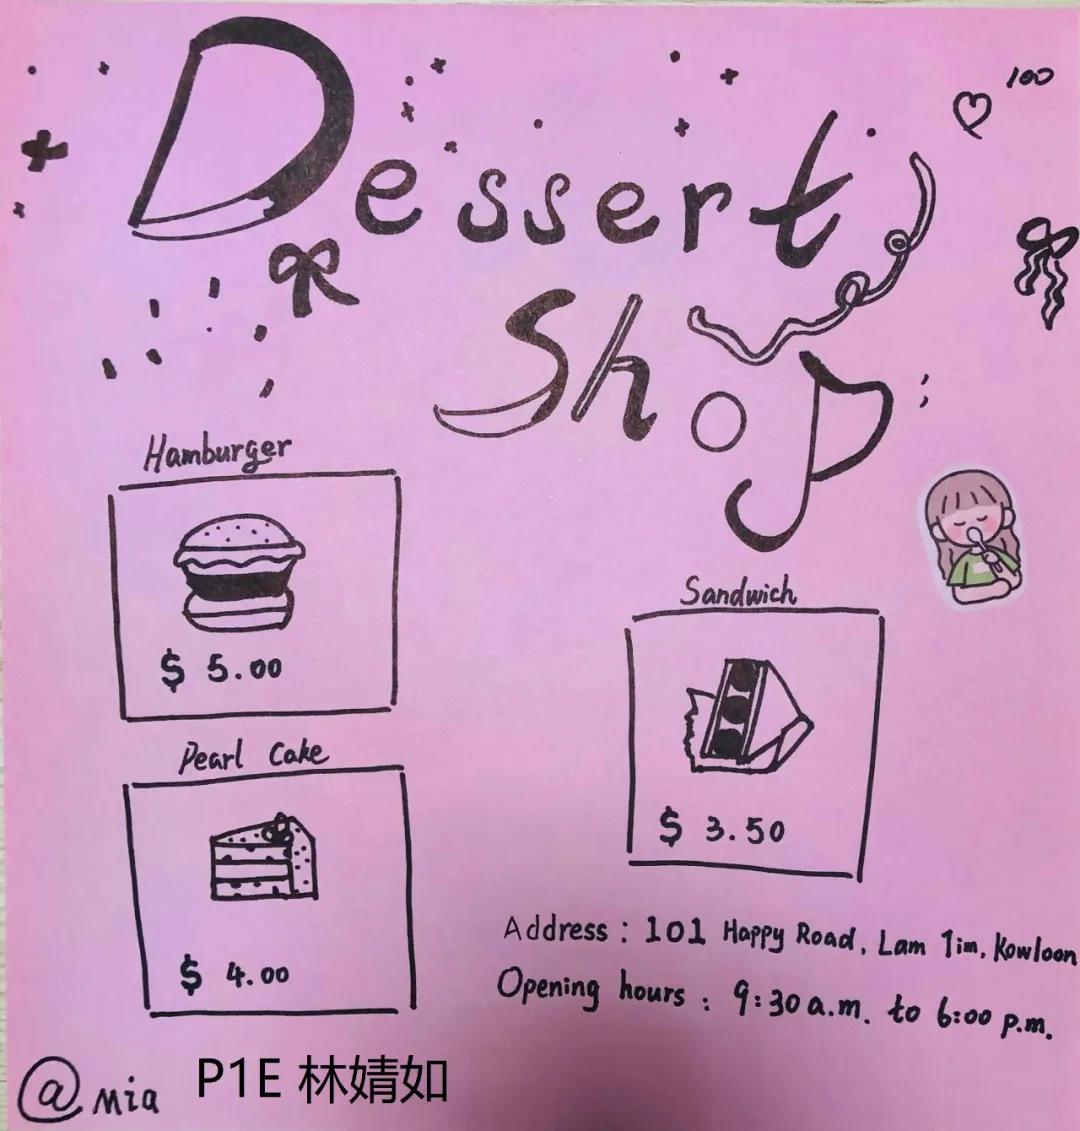 100
Dessert
Shop
Hamburger
$ 5.00
Sandwich
$ 3.50
Pearl Cake
$ 4.00
Address : 101 Happy Road, Lam Tim, Kowloon
Opening hours : 9:30 a.m. to 6:00 p.m.
@mia
P1E 林婧如